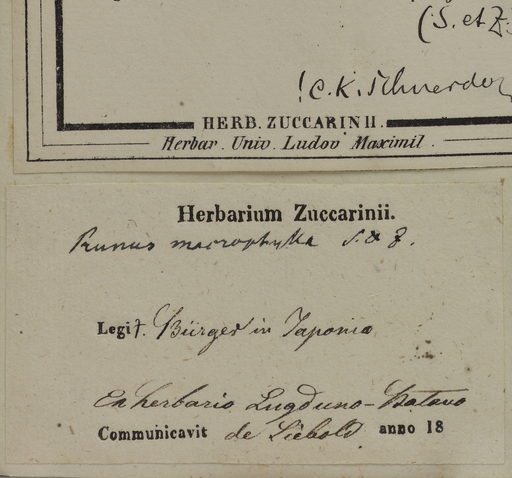 (S. et Z.
! C. K. Schneider
HERB. ZUCCARINII.
Herbar. Univ. Ludov Maximil.
Herbarium Zuccarinii.
Prunus macrophylla S. & Z.
Legit. Bürger in Japonia
Ex herbario Lugduno-Batavo
Communicavit de Siebold anno 18